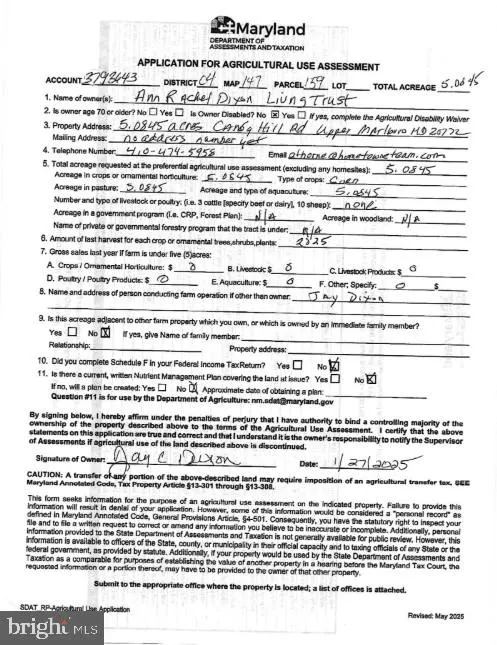 Maryland
DEPARTMENT OF
ASSESSMENTS AND TAXATION
APPLICATION FOR AGRICULTURAL USE ASSESSMENT
ACCOUNT 3793643 DISTRICT 04 MAP 147 PARCEL 159 LOT TOTAL ACREAGE 5.0845
1. Name of owner(s): Ann Rachel Dixon Living Trust
2. Is owner age 70 or older? No Yes Is Owner Disabled? No Yes If yes, complete the Agricultural Disability Waiver
3. Property Address: 5.0845 acres Candy Hill Rd Upper Marlboro MD 20772
Mailing Address: no address number yet
4. Telephone Number: 410-474-5958 Email athorne@hometowneteam.com
5. Total acreage requested at the preferential agricultural use assessment (excluding any homesites): 5.0845
Acreage in crops or ornamental horticulture: 5.0845 Type of crops:
Acreage in pasture: 5.0845 Acreage and type of aquaculture: 5.0845
Number and type of livestock or poultry: (i.e. 3 cattle [specify beef or dairy], 10 sheep): none
Acreage in a government program (i.e. CRP, Forest Plan): N/A Acreage in woodland: N/A
Name of private or governmental forestry program that the tract is under: N/A
6. Amount of last harvest for each crop or ornamental trees,shrubs,plants: 2025
7. Gross sales last year if farm is under five (5)acres:
A. Crops / Ornamental Horticulture: $ 0 B. Livestock: $ 0 C. Livestock Products: $ 0
D. Poultry / Poultry Products: $ 0 E. Aquaculture: $ 0 F. Other; Specify: 0 $
8. Name and address of person conducting farm operation if other than owner: Jay Dixon
9. Is this acreage adjacent to other farm property which you own, or which is owned by an immediate family member?
Yes No X If yes, give Name of family member:
Relationship: Property address:
10. Did you complete Schedule F in your Federal Income Tax Return? Yes No X
11. Is there a current, written Nutrient Management Plan covering the land at issue? Yes No X
If no, will a plan be created: Yes No X Approximate date of obtaining a plan:
Question #11 is for use by the Department of Agriculture: nm.sdat@maryland.gov
By signing below, I hereby affirm under the penalties of perjury that I have authority to bind a controlling majority of the
ownership of the property described above to the terms of the Agricultural Use Assessment. I certify that the above
statements on this application are true and correct and that I understand it is the owner's responsibility to notify the Supervisor
of Assessments if agricultural use of the land described above is discontinued.
Signature of Owner: Jay C Dixon Date: 1/27/2025
CAUTION: A transfer of any portion of the above-described land may require imposition of an agricultural transfer tax. SEE
Maryland Annotated Code, Tax Property Article §13-301 through §13-308.
This form seeks information for the purpose of an agricultural use assessment on the indicated property. Failure to provide this
information will result in denial of your application. However, some of this information would be considered a "personal record" as
defined in Maryland Annotated Code, General Provisions Article, §4-501. Consequently, you have the statutory right to inspect your
file and to file a written request to correct or amend any information you believe to be inaccurate or incomplete. Additionally, personal
information provided to the State Department of Assessments and Taxation is not generally available for public review. However, this
information is available to officers of the State, county, or municipality in their official capacity and to taxing officials of any State or the
federal government, as provided by statute. Additionally, if your property would be used by the State Department of Assessments and
Taxation as a comparable for purposes of establishing the value of another property in a hearing before the Maryland Tax Court, the
requested information or a portion thereof, may have to be provided to the owner of that other property.
Submit to the appropriate office where the property is located; a list of offices is attached.
SDAT_RP-Agricultural Use Application
Revised: May 2025
bright MLS